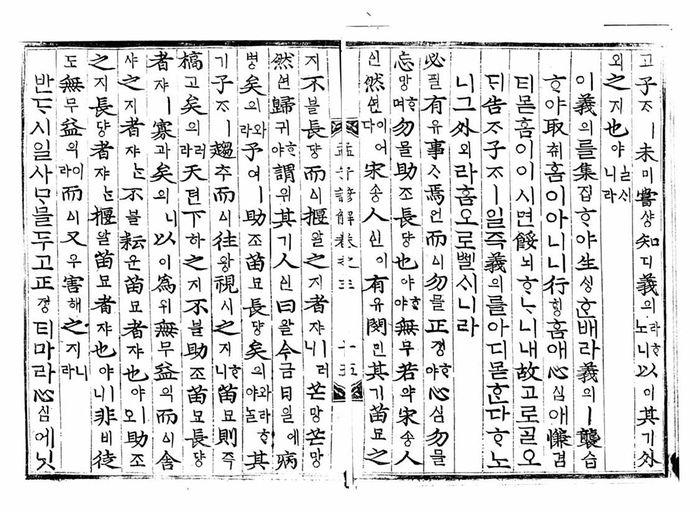 고子ᄌᆞㅣ未미嘗샹知디義의라ᄒᆞ노니以이其기外
외之지也야ㄹᄉᆡ니라
이義의를集집ᄒᆞ야生ᄉᆡᆼᄒᆞᆫ배라義의ㅣ襲습
ᄒᆞ야取ᄎᆔ홈이아니니行ᄒᆡᆼ홈애心심애慊겸
티몯홈이이시면餒뇌ᄒᆞᄂᆞ니내故고로ᄀᆞᆯ오
ᄃᆡ告고子ᄌᆞㅣ일즉義의를아디몯ᄒᆞᆫ다ᄒᆞ노
니그外외라홈오로ᄡᅦᆯᄉᆡ니라
必필有유事ᄉᆞ焉언而ᅀᅵ勿믈正졍ᄒᆞ야心심勿믈
忘망ᄒᆞ며勿믈助조長댱也야ᄒᆞ야無무若약宋송人
ᅀᅵᆫ然ᅀᅧᆫ이어다宋송人ᅀᅵᆫ이有유閔민其기苗묘之
孟子諺解卷之三 十五
지不블長댱而ᅀᅵ揠알之지者쟈ㅣ러니芒망芒망
然ᅀᅧᆫ歸귀ᄒᆞ야謂위其기人ᅀᅵᆫ曰왈今금日ᅀᅵᆯ에病
병矣의와라予여ㅣ助조苗묘長댱矣의와라ᄒᆞ야ᄂᆞᆯ其
기子ᄌᆞㅣ趨추而ᅀᅵ往왕視시之지ᄒᆞ니苗묘則즉
槁고矣의러라天텬下하之지不블助조苗묘長댱
者쟈ㅣ寡과矣의니以이爲위無무益익而ᅀᅵ舍
샤之지者쟈ᄂᆞᆫ不블耘운苗묘者쟈也야오助조
之지長댱者쟈ᄂᆞᆫ揠알苗묘者쟈也야니非비徒
도無무益익이라而ᅀᅵ又우害해之지니라
반ᄃᆞ시일두고正졍티마라心심에닛